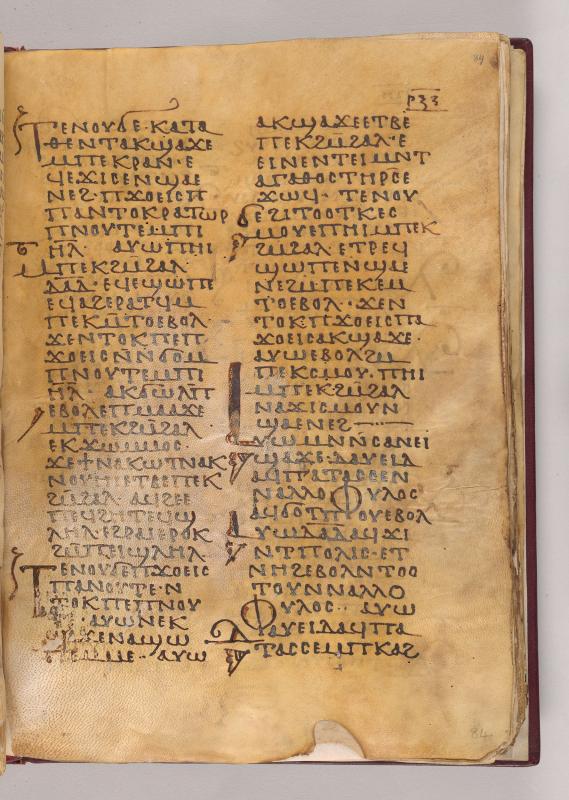 ⲣ̅ⲝ̅ⲍ̅
ⲧⲉⲛⲟⲩϭⲉ· ⲕⲁⲧⲁ
ⲑⲉⲛⲧⲁⲕϣⲁϫⲉ
ⲙⲡⲉⲕⲣⲁⲛ· ⲉ
ϥⲉϫⲓⲥⲉⲛϣⲁⲉ
ⲛⲉϩ· ⲡϫⲟⲉⲓⲥⲡ
ⲡⲁⲛⲧⲟⲕⲣⲁⲧⲱⲣ
ⲡⲛⲟⲩⲧⲉⲙⲡⲓ
ⲏ̅ⲗ̅· ⲁⲩⲱⲡⲏⲓ
ⲙⲡⲉⲕϩⲙ̅ϩⲁⲗ
ⲇ̅ⲁ̅ⲇ̅· ⲉϥⲉϣⲱⲡⲉ
ⲉϥⲁϩⲉⲣⲁⲧϥⲙ
ⲡⲉⲕⲙ̅ⲧⲟⲉⲃⲟⲗ·
ϫⲉⲛⲧⲟⲕⲡⲉⲡ
ϫⲟⲉⲓⲥⲛ̅ⲛ̅ϭⲟⲙ
ⲡⲛⲟⲩⲧⲉⲙⲡⲓ
ⲏ̅ⲗ̅· ⲁⲕϭⲱⲗⲡ̅
ⲉⲃⲟⲗⲉⲡⲙⲁⲁϫⲉ
ⲙⲡⲉⲕϩⲙ̅ϩⲁⲗ
ⲉⲕϫⲱⲙⲙⲟⲥ·
ϫⲉϯⲛⲁⲕⲱⲧⲛⲁⲕ
ⲛⲟⲩⲏⲓⲉⲧⲃⲉⲡⲉⲕ
ϩⲙ̅ϩⲁⲗ· ⲁϥϩⲉⲉ
ⲡⲉϥϩⲏⲧⲉϥϣ
ⲗⲏⲗⲉϩⲣⲁⲓⲉⲣⲟⲕ
ϩⲙ̅ⲡⲉⲓϣⲗⲏⲗ
ⲧⲉⲛⲟⲩϭⲉⲡϫⲟⲉⲓⲥ
ⲡⲁⲛⲟⲩⲧⲉ· ⲛ
ⲧⲟⲕⲡⲉⲡⲛⲟⲩ
ⲧⲉ· ⲁⲩⲱⲛⲉⲕ
ϣⲁϫⲉⲛⲁϣⲱ
ⲡⲉⲙⲙⲉ· ⲁⲩⲱ
ⲁⲕϣⲁϫⲉⲉⲧⲃⲉ
ⲡⲉⲕϩⲙ̅ϩⲁⲗ· ⲉ
ⲉⲓⲛⲉⲛⲧⲉⲓⲙⲛⲧ
ⲁⲅⲁⲑⲟⲥⲧⲏⲣⲥⲉ
ϫⲱϥ· ⲧⲉⲛⲟⲩ
ϭⲉϩⲓⲧⲟⲟⲧⲕⲉⲥ
ⲙⲟⲩⲉⲡⲏⲓⲙⲡⲉⲕ
ϩⲙ̅ϩⲁⲗ· ⲉⲧⲣⲉϥ
ϣⲱⲡⲉⲛϣⲁⲉ
ⲛⲉϩⲙⲡⲉⲕⲉⲙ
ⲧⲟⲉⲃⲟⲗ· ϫⲉⲛ
ⲧⲟⲕⲡϫⲟⲉⲓⲥⲡⲁ
ϫⲟⲉⲓⲥⲁⲕϣⲁϫⲉ·
ⲁⲩⲱⲉⲃⲟⲗϩⲙ
ⲡⲉⲕⲥⲙⲟⲩ· ⲡⲏⲓ
ⲙⲡⲉⲕϩⲙ̅ϩⲁⲗ
ⲛⲁϫⲓⲥⲙⲟⲩⲛ
ϣⲁⲉⲛⲉϩ
ⲁⲩⲱⲙⲛⲛ̅ⲥⲁⲛⲉⲓ
ϣⲁϫⲉ· ⲇⲁⲩⲉⲓⲇ
ⲁϥⲡⲁⲧⲁⲥⲥⲉⲛ
ⲛⲁⲗⲗⲟⲫⲩⲗⲟⲥ
ⲁϥϭⲟⲧⲡⲟⲩⲉⲃⲟⲗ
ⲁⲩⲱⲇ̅ⲁ̅ⲇ̅ⲁϥϫⲓ
ⲛⲧⲡⲟⲗⲓⲥ· ⲉⲧ
ⲛⲏϩⲉⲃⲟⲗⲛⲧⲟⲟ
ⲧⲟⲩⲛⲛⲁⲗⲗⲟ
ⲫⲩⲗⲟⲥ· ⲁⲩⲱ
ⲇⲁⲩⲉⲓⲇⲁϥⲡⲁ
ⲧⲁⲥⲥⲉⲙⲡⲕⲁϩ